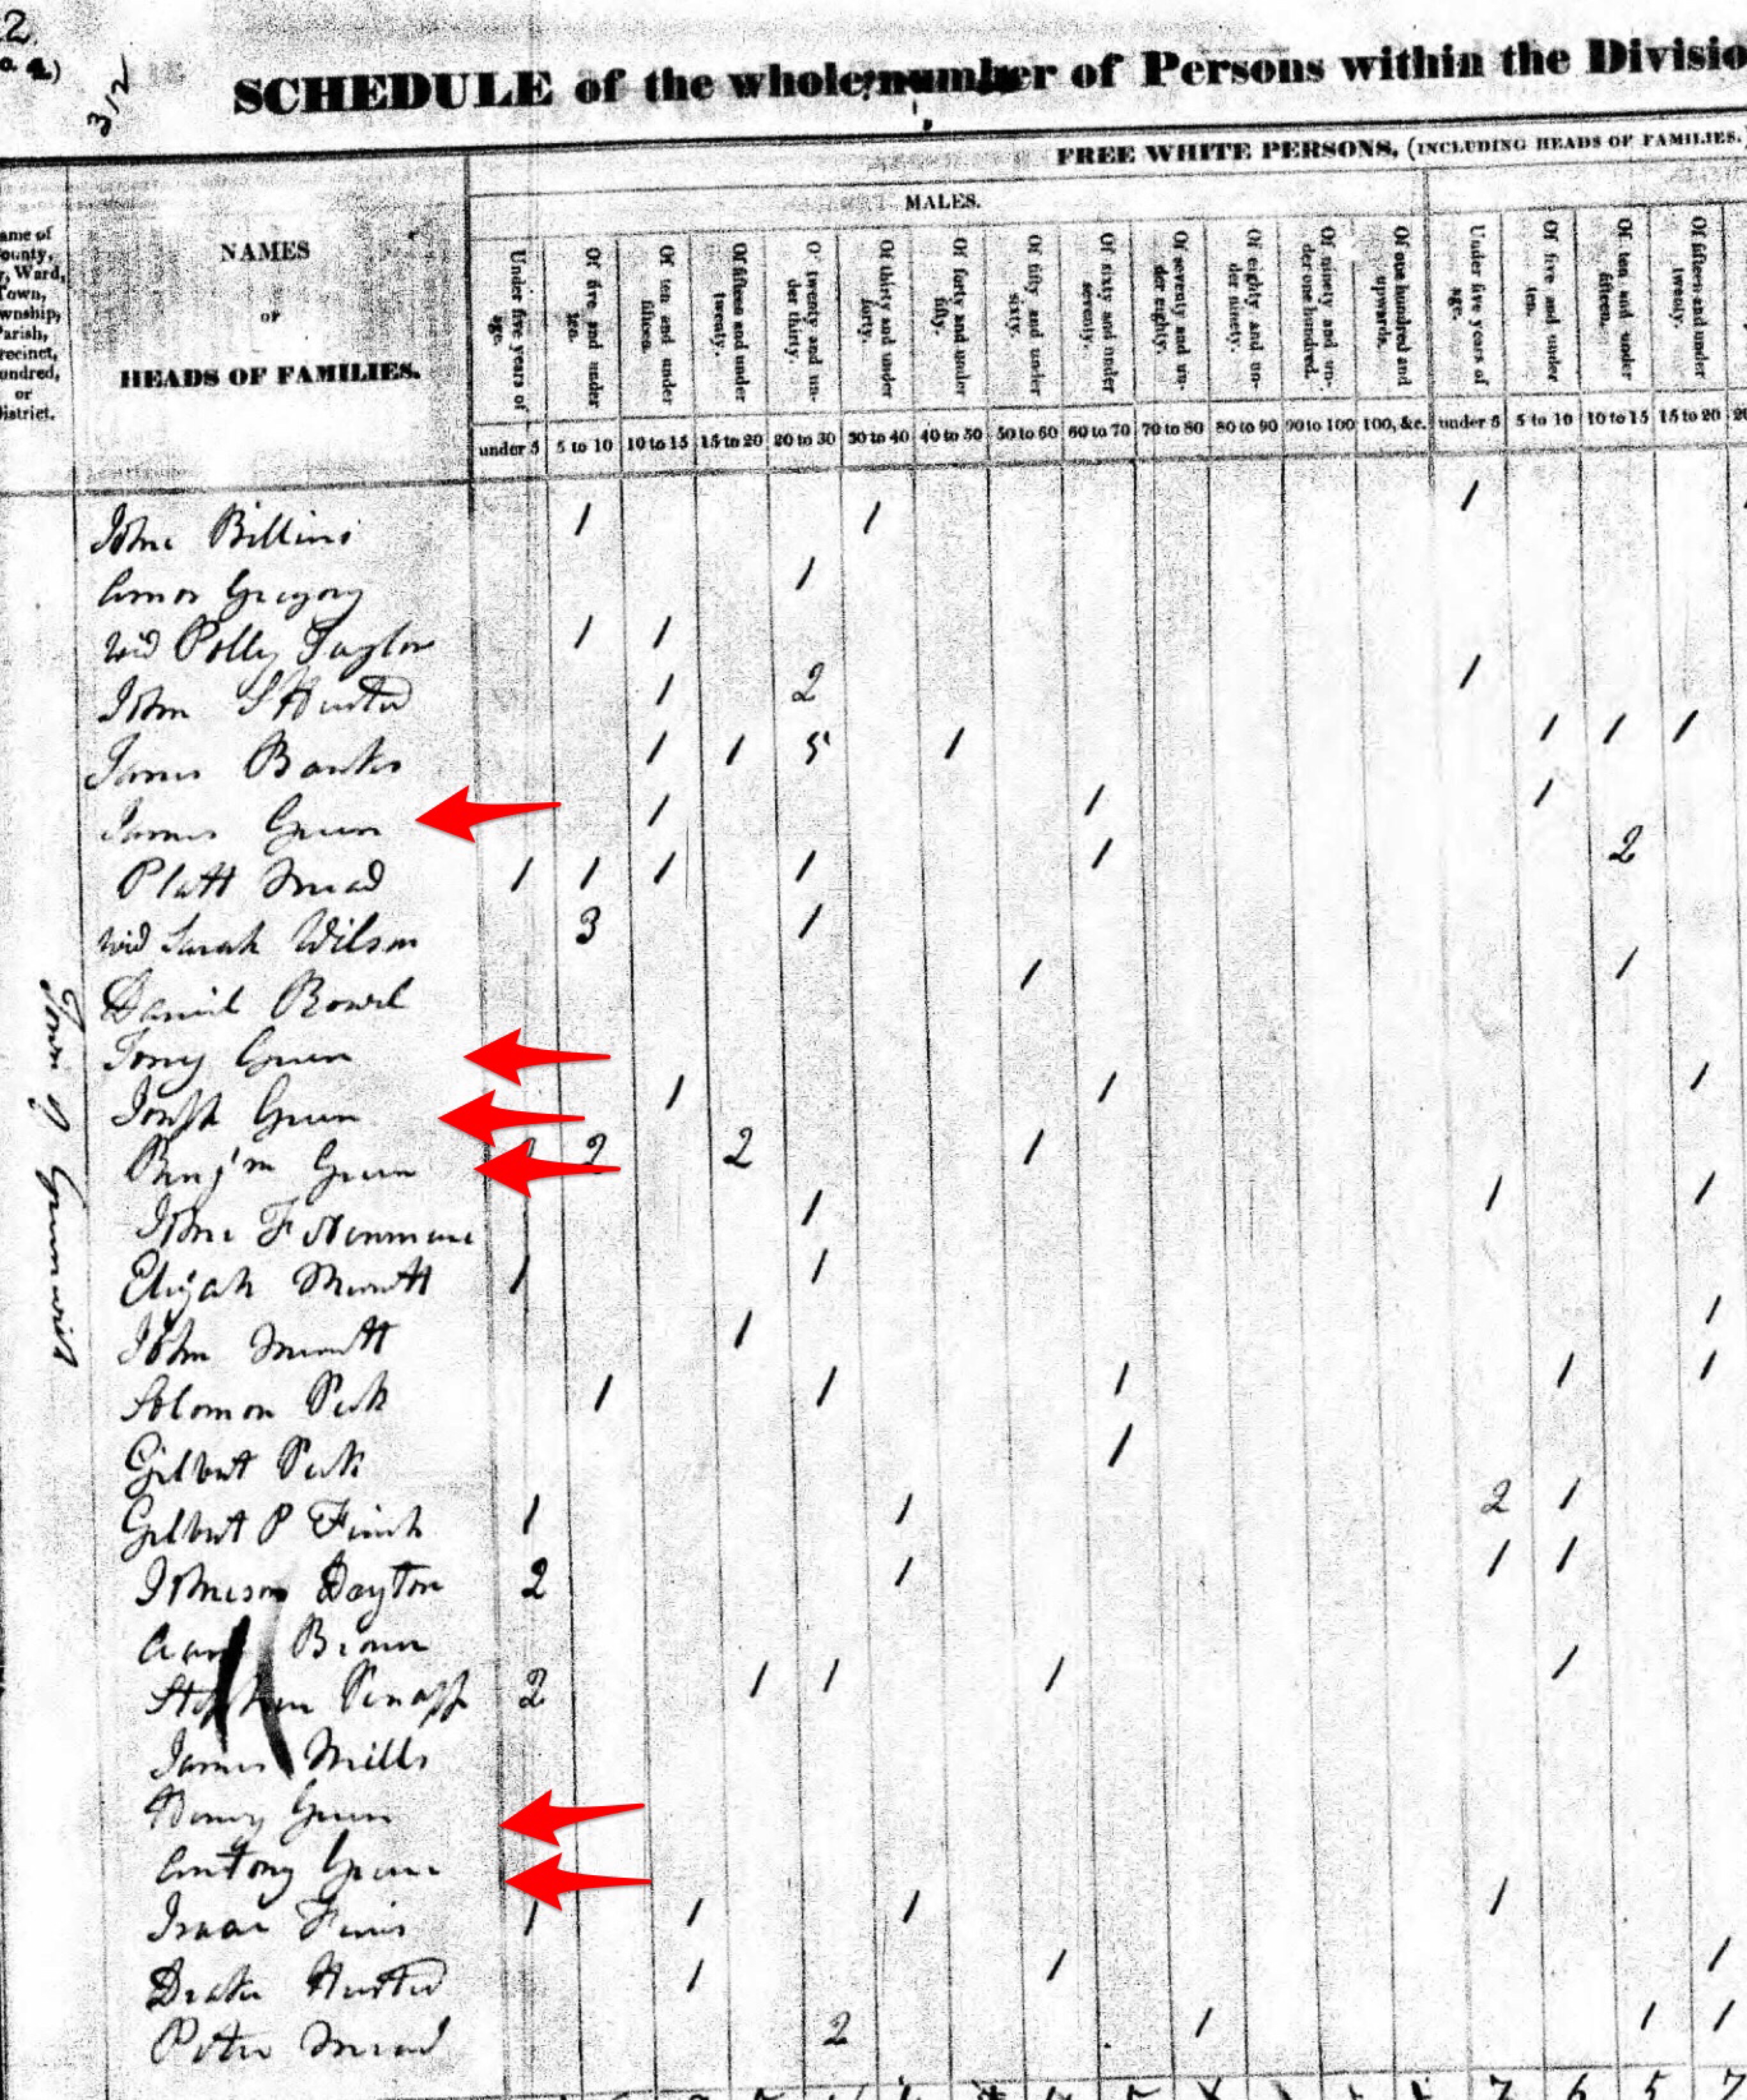 2.
312
SCHEDULE of the whole number of Persons within the Divisio
FREE WHITE PERSONS, (INCLUDING HEADS OF FAMILIES.)
MALES.
ame of
ounty,
, Ward,
Town,
wnship,
Parish,
recinct,
undred,
or
District.
NAMES
OF
HEADS OF FAMILIES.
Under five years of age.
Of five and under ten.
Of ten and under fifteen.
Of fifteen and under twenty.
O twenty and under thirty.
Of thirty and under forty.
Of forty and under fifty.
Of fifty and under sixty.
Of sixty and under seventy.
Of seventy and under eighty.
Of eighty and under ninety.
Of ninety and under one hundred.
Of one hundred and upwards.
Under five years of age.
Of five and under ten.
Of ten and under fifteen.
Of fifteen and under twenty.
under 5 5 to 10 10 to 15 15 to 20 20 to 30 30 to 40 40 to 50 50 to 60 60 to 70 70 to 80 80 to 90 90 to 100 100, &c. under 5 5 to 10 10 to 15 15 to 20 20
John Billins 1 1 1
Gregory 1
wid Polly Taylor 1 1
John S Husted 1 2 1
James Banks 1 1 5 1 1 1 1
James Green 1 1 1
Platt Mead 1 1 1 1 1 2
wid Sarah Wilson 3 1
Daniel 1 1
Green
Joseph Green 1 1 1
Benj'm Green 2 2 1
John F 1 1 1
Elijah Merritt 1 1
John Merritt 1 1
Solomon Peck 1 1 1 1 1
Gilbert Peck 1
Gilbert P Finch 1 1 2 1
Dayton 2 1 1 1
Brown
Stephen 2 1 1 1 1
James Mills
Henry Green
Antony Green
Isaac 1 1 1 1
Husted 1 1 1
Peter Mead 2 1 1 1
Town of Greenwich